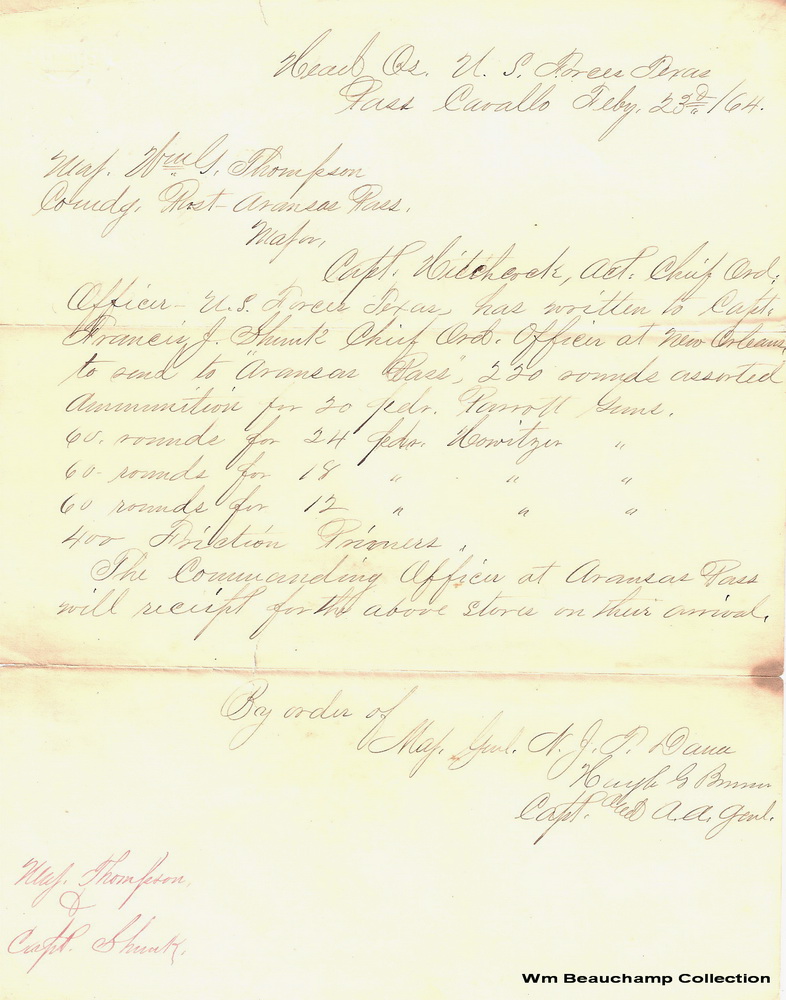 Head Qs. U. S. Forces Texas
Pass Cavallo Feby. 23d /64.
Maj. Wm G. Thompson
Comdg. Post Aransas Pass.
Major,
Capt. Hitchcock, Act. Chief Ord.
Officer - U.S. Forces Texas, has written to Capt.
Francis J. Shunk Chief Ord. Officer at New Orleans,
to send to "Aransas Pass", 220 rounds assorted
Ammunition for 20 pdr. Parrott Guns.
60. rounds for 24 pdr. Howitzer "
60 - rounds for 18 " " "
60 rounds for 12 " " "
400 Friction Primers "
The Commanding Officer at Aransas Pass
will receipt for the above stores on their arrival.
By order of
Maj. Genl. N. J. T. Dana
Hugh G
Capt. and A. A. Genl.
Maj. Thompson
&
Capt. Shunk.
Wm Beauchamp Collection